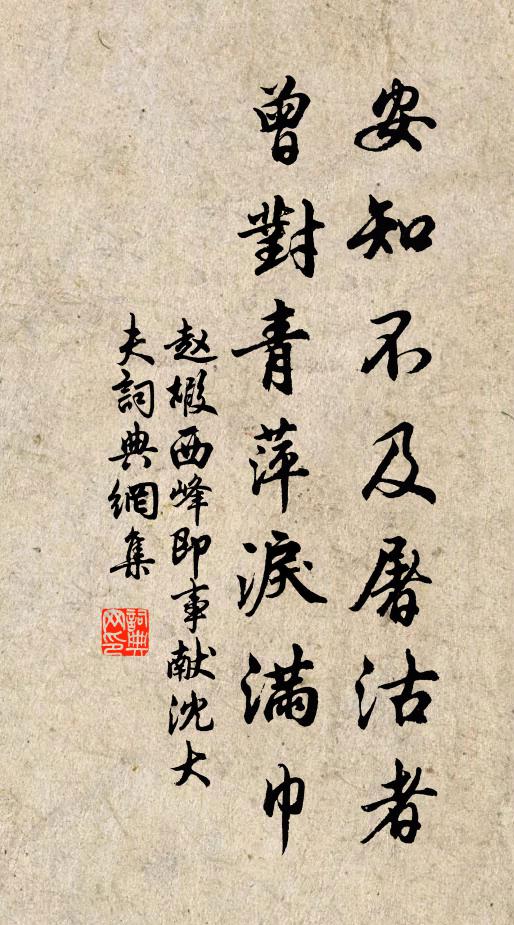 安知不及屠沽者
曾對青萍淚滿巾
赵嘏西峰即事献沈大
夫詞典網集
詞典
网印